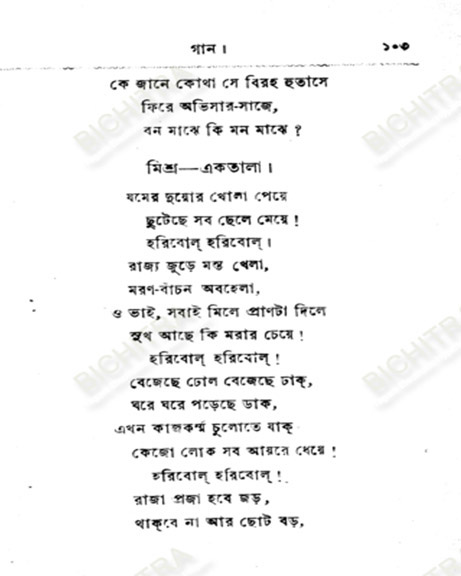 গান ।
১০৩
কে জানে কোথা সে বিরহ হুতাসে
ফিরে অভিসার-সাজে,
বন মাঝে কি মন মাঝে ?
মিশ্র—একতালা ।
যমের দুয়োর খোলা পেয়ে
ছুটেছে সব ছেলে মেয়ে !
হরিবোল্ হরিবোল্ ।
রাজ্য জুড়ে মস্ত খেলা,
মরণ-বাঁচন অবহেলা,
ও ভাই, সবাই মিলে প্রাণটা দিলে
সুখ আছে কি মরার চেয়ে !
হরিবোল্ হরিবোল্ !
বেজেছে ঢোল বেজেছে ঢাক্,
ঘরে ঘরে পড়েছে ডাক,
এখন কাজকর্ম্ম চুলোতে যাক্
কেজো লোক সব আয়রে ধেয়ে !
হরিবোল্ হরিবোল্ !
রাজা প্রজা হবে জড়,
থাক্‌বে না আর ছোট বড়,
BICHITRA
BICHITRA
BICHITRA
BICHITRA